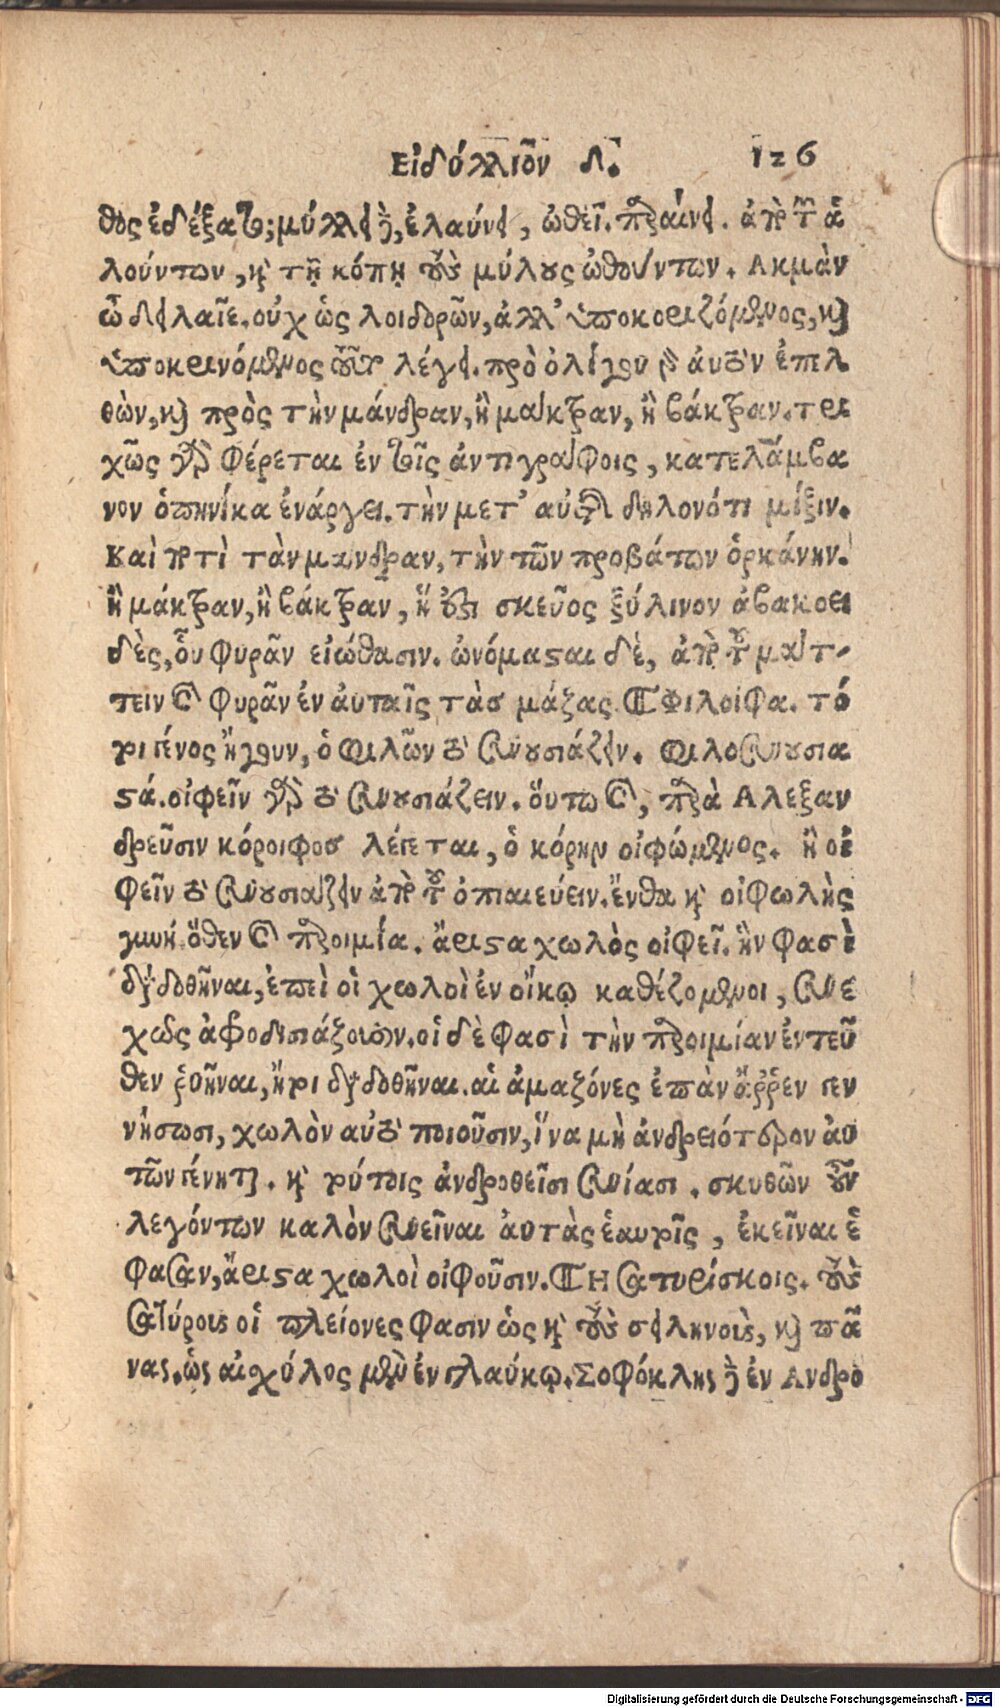 Εἰδύλλιον δ. 126
θος ἐδέξατο; μύλλει δὲ, ἐλαύνει, ὠθεῖ. περαίνει. ἀπὸ τῶν ἀ
λούντων, καὶ τῇ κόπῃ τοὺς μύλους ὠθούντων. Ἀκμὰν
ὦ δείλαῖε. οὐχ ὡς λοιδορῶν, ἀλλ' ὑποκοριζόμενος, καὶ
ὑποκρινόμενος τοῦτο λέγει. πρὸ ὀλίγου δὲ αὐτὸν ἐπελ
θὼν, καὶ πρὸς τὴν μάνδραν, ἢ μάκτραν, ἢ βάκτραν. τρι
χῶς γὰρ φέρεται ἐν τοῖς ἀντιγράφοις, κατελάμβα
νον ὁπηνίκα ἐνάργει. τὴν μετ' αὐτῆς δηλονότι μίξιν.
Καὶ ποτὶ τὰν μάνδραν, τὴν τῶν προβάτων ὁρκάνην.
ἢ μάκτραν, ἢ βάκτραν, ἥ τοι σκεῦος ξύλινον ἀβακοει
δὲς, οὗ φυρᾶν εἰώθασιν. ὠνόμασται δὲ, ἀπὸ τοῦ μάτ-
τειν καὶ φυρᾶν ἐν αὐταῖς τὰσ μάζας. ¶ Φιλοίφα. τό
τι γένος ἤγουν, ὁ φιλῶν τὸ συνουσιάζειν. φιλοσυνουσια
στά. οἰφεῖν γὰρ τὸ συνουσιάζειν. οὕτω καὶ, παρὰ Ἀλεξαν
δρεῦσιν κόροιφοσ λέγεται, ὁ κόρην οἰφώμενος. ἢ οἰ
φεῖν τὸ συνουσιάζειν ἀπὸ τοῦ ὀπιαιεύειν. ἔνθα καὶ οἰφωλὴς
γυνή. ὅθεν καὶ παροιμία. ἄριστα χωλὸς οἰφεῖ. ἣν φασὶ
διαδοθῆναι, ἐπεὶ οἱ χωλοὶ ἐν οἴκῳ καθέζομενοι, συνε
χῶς ἀφροδισιάζουσιν. οἱ δὲ φασὶ τὴν παροιμίαν ἐντεῦ
θεν ῥηθῆναι, ἤτοι διαδοθῆναι. αἱ ἀμαζόνες ἐπὰν ἄρρεν γεν
νήσωσι, χωλὸν αὐτὸ ποιοῦσιν, ἵνα μὴ ἀνδρειότερον αὐ
τῶν γένηται. καὶ τούτοις ἀνδρωθεῖσι συνίασι. σκυθῶν οὖν
λεγόντων καλὸν συνεῖναι αὐτὰς ἑαυτοῖς, ἐκεῖναι ἔ
φασαν, ἄριστα χωλοὶ οἰφοῦσιν. ¶ Ἢ σατυρίσκοις. τοὺς
σατύρους οἱ πλείονες φασιν ὡς καὶ τοὺς σειληνοὺς, καὶ πᾶ
νας. ὡς αἰσχύλος μὲν ἐν γλαύκῳ. Σοφόκλης δὲ ἐν Ἀνδρο